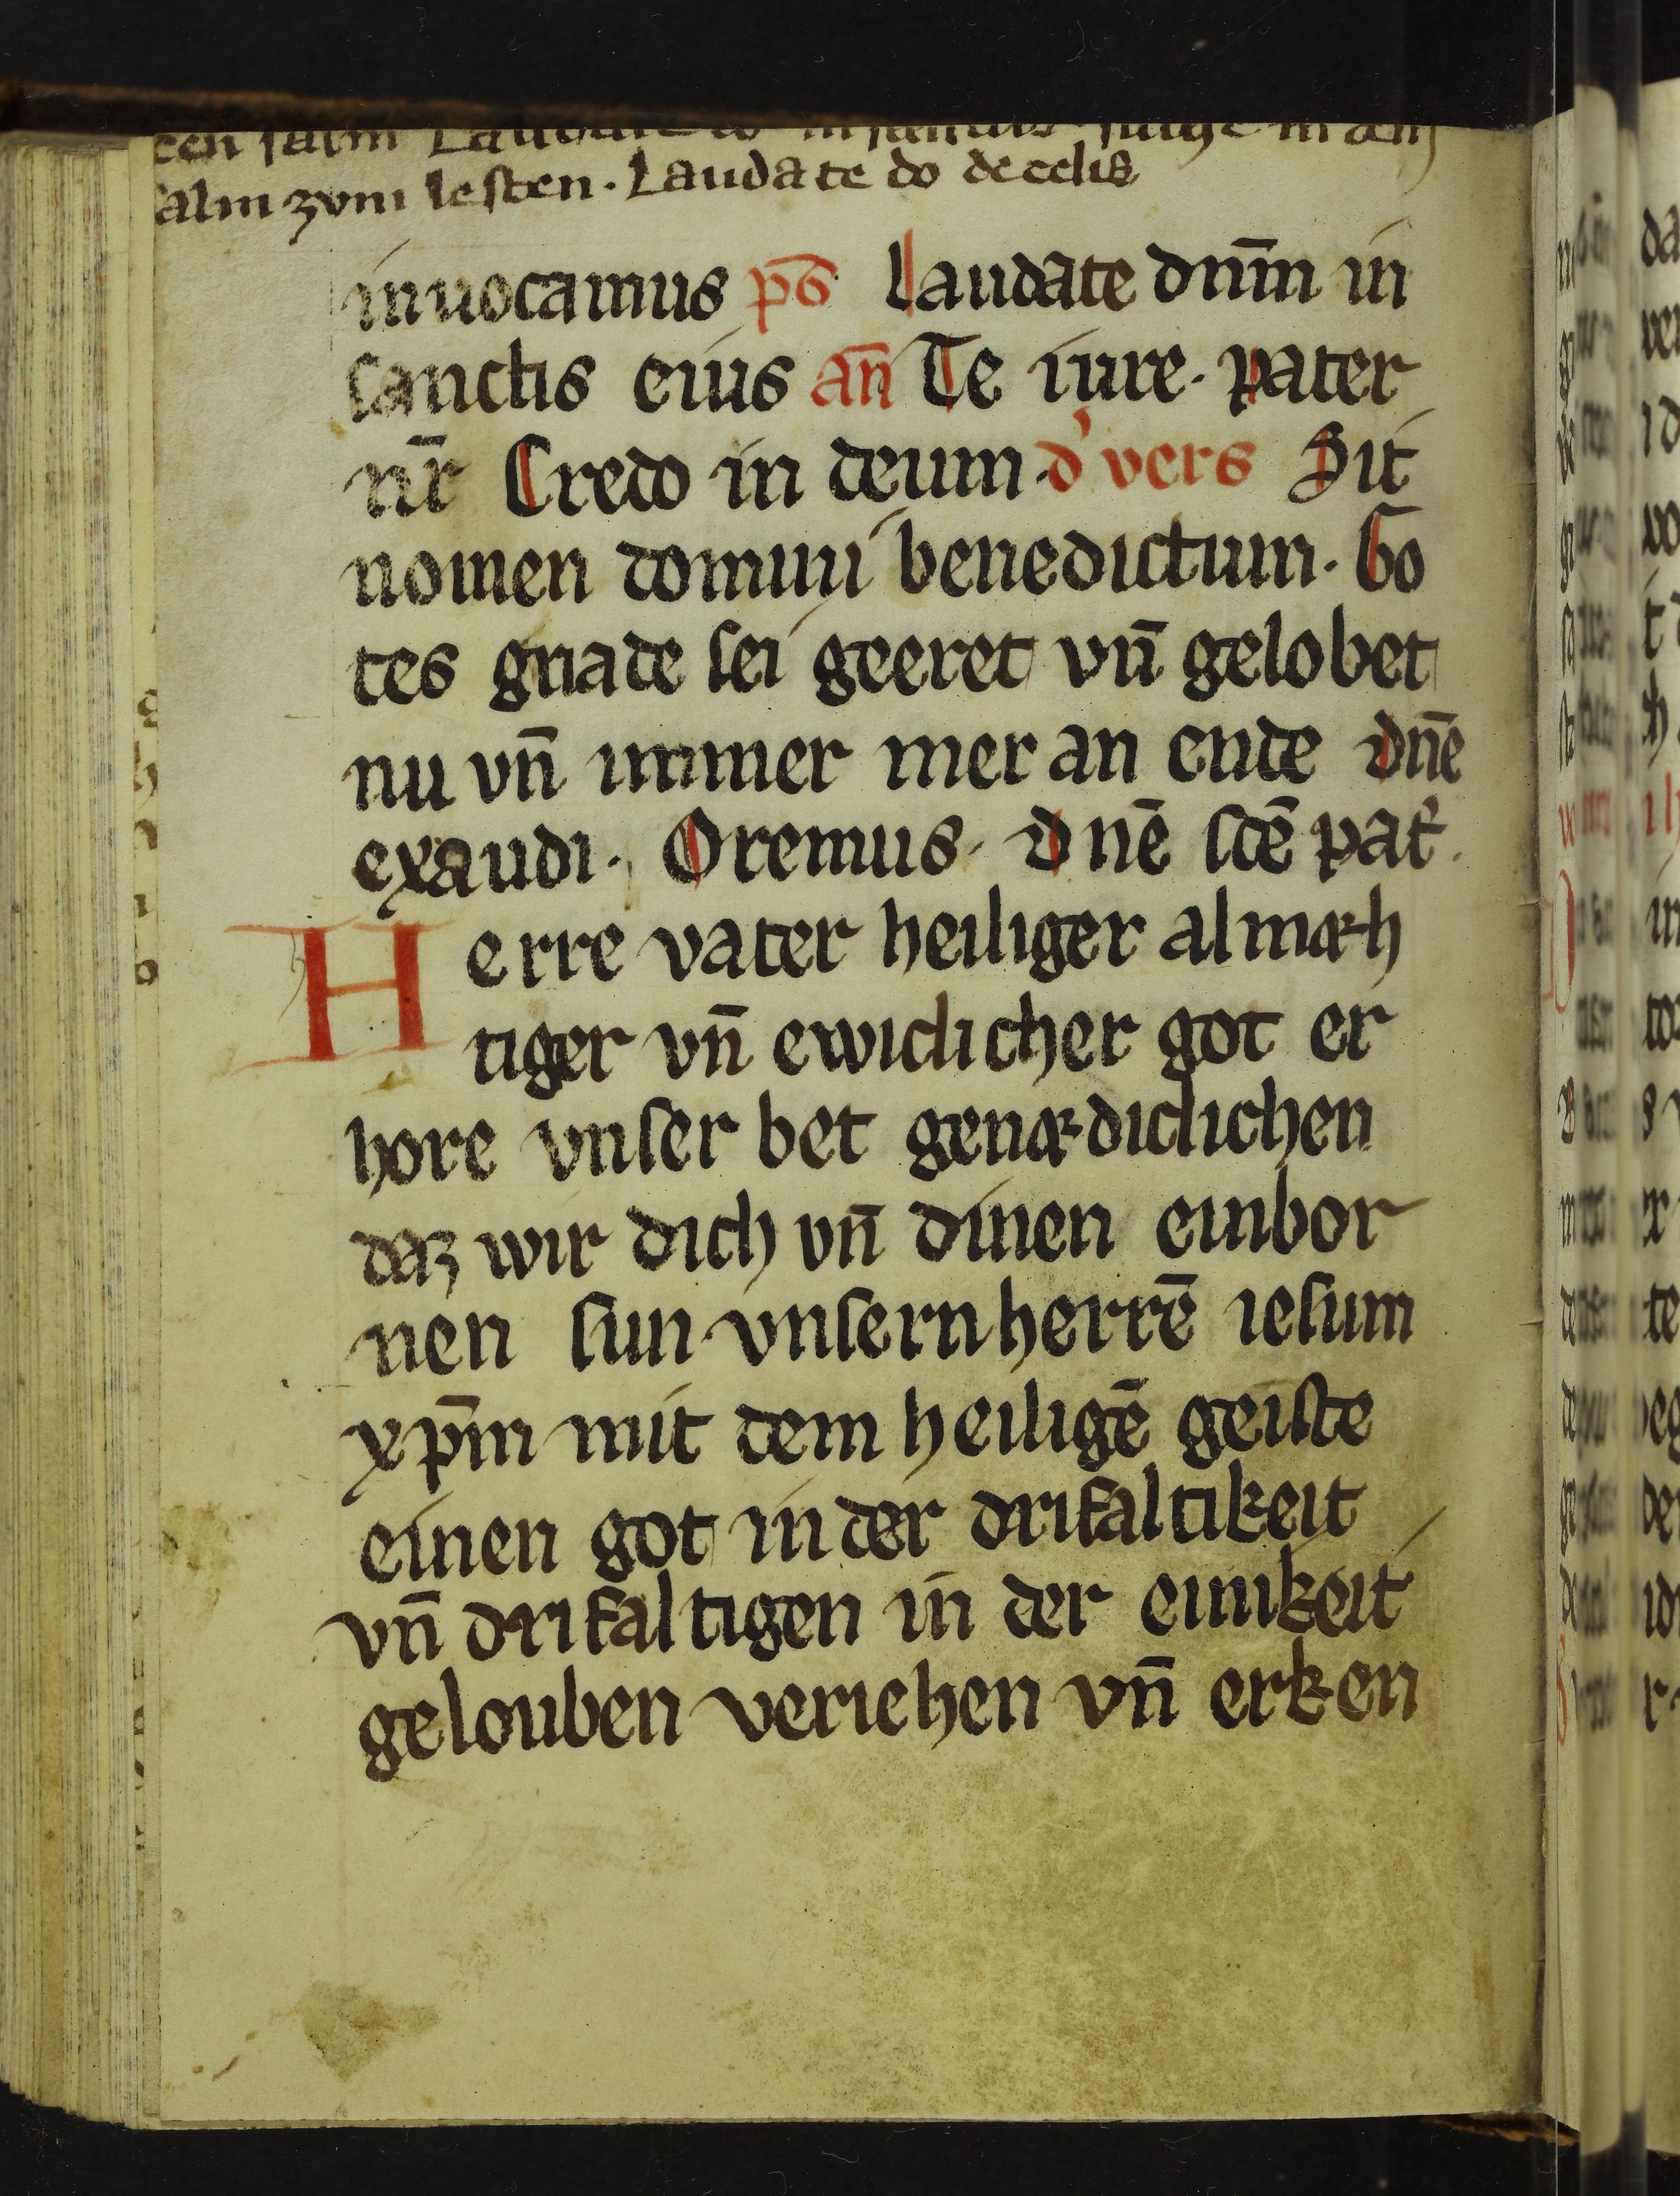 salm zvm lesten. Laudate do de celis
inuocamus ps̄ Laudate dnm̄ in
sanctis eius an̄ Te iure. pater
nr̄ Credo in deum. d' vers Sit
nomen domini benedictum. Go
tes gnade sei geeret vn̄ gelobet
nu vn̄ immer mer an ende dnē
exaudi. Oremus. dnē scē pat'.
Herre vater heiliger almæh
tiger vn̄ ewiclicher got er
hore vnser bet genædiclichen
daz wir dich vn̄ dinen einbor
nen sun. vnsern herrē iesum
xpm̄ mit dem heiligē geiste
einen got in der drifaltikeit
vn̄ drifaltigen in der einikeit
gelouben veriehen vn̄ erken